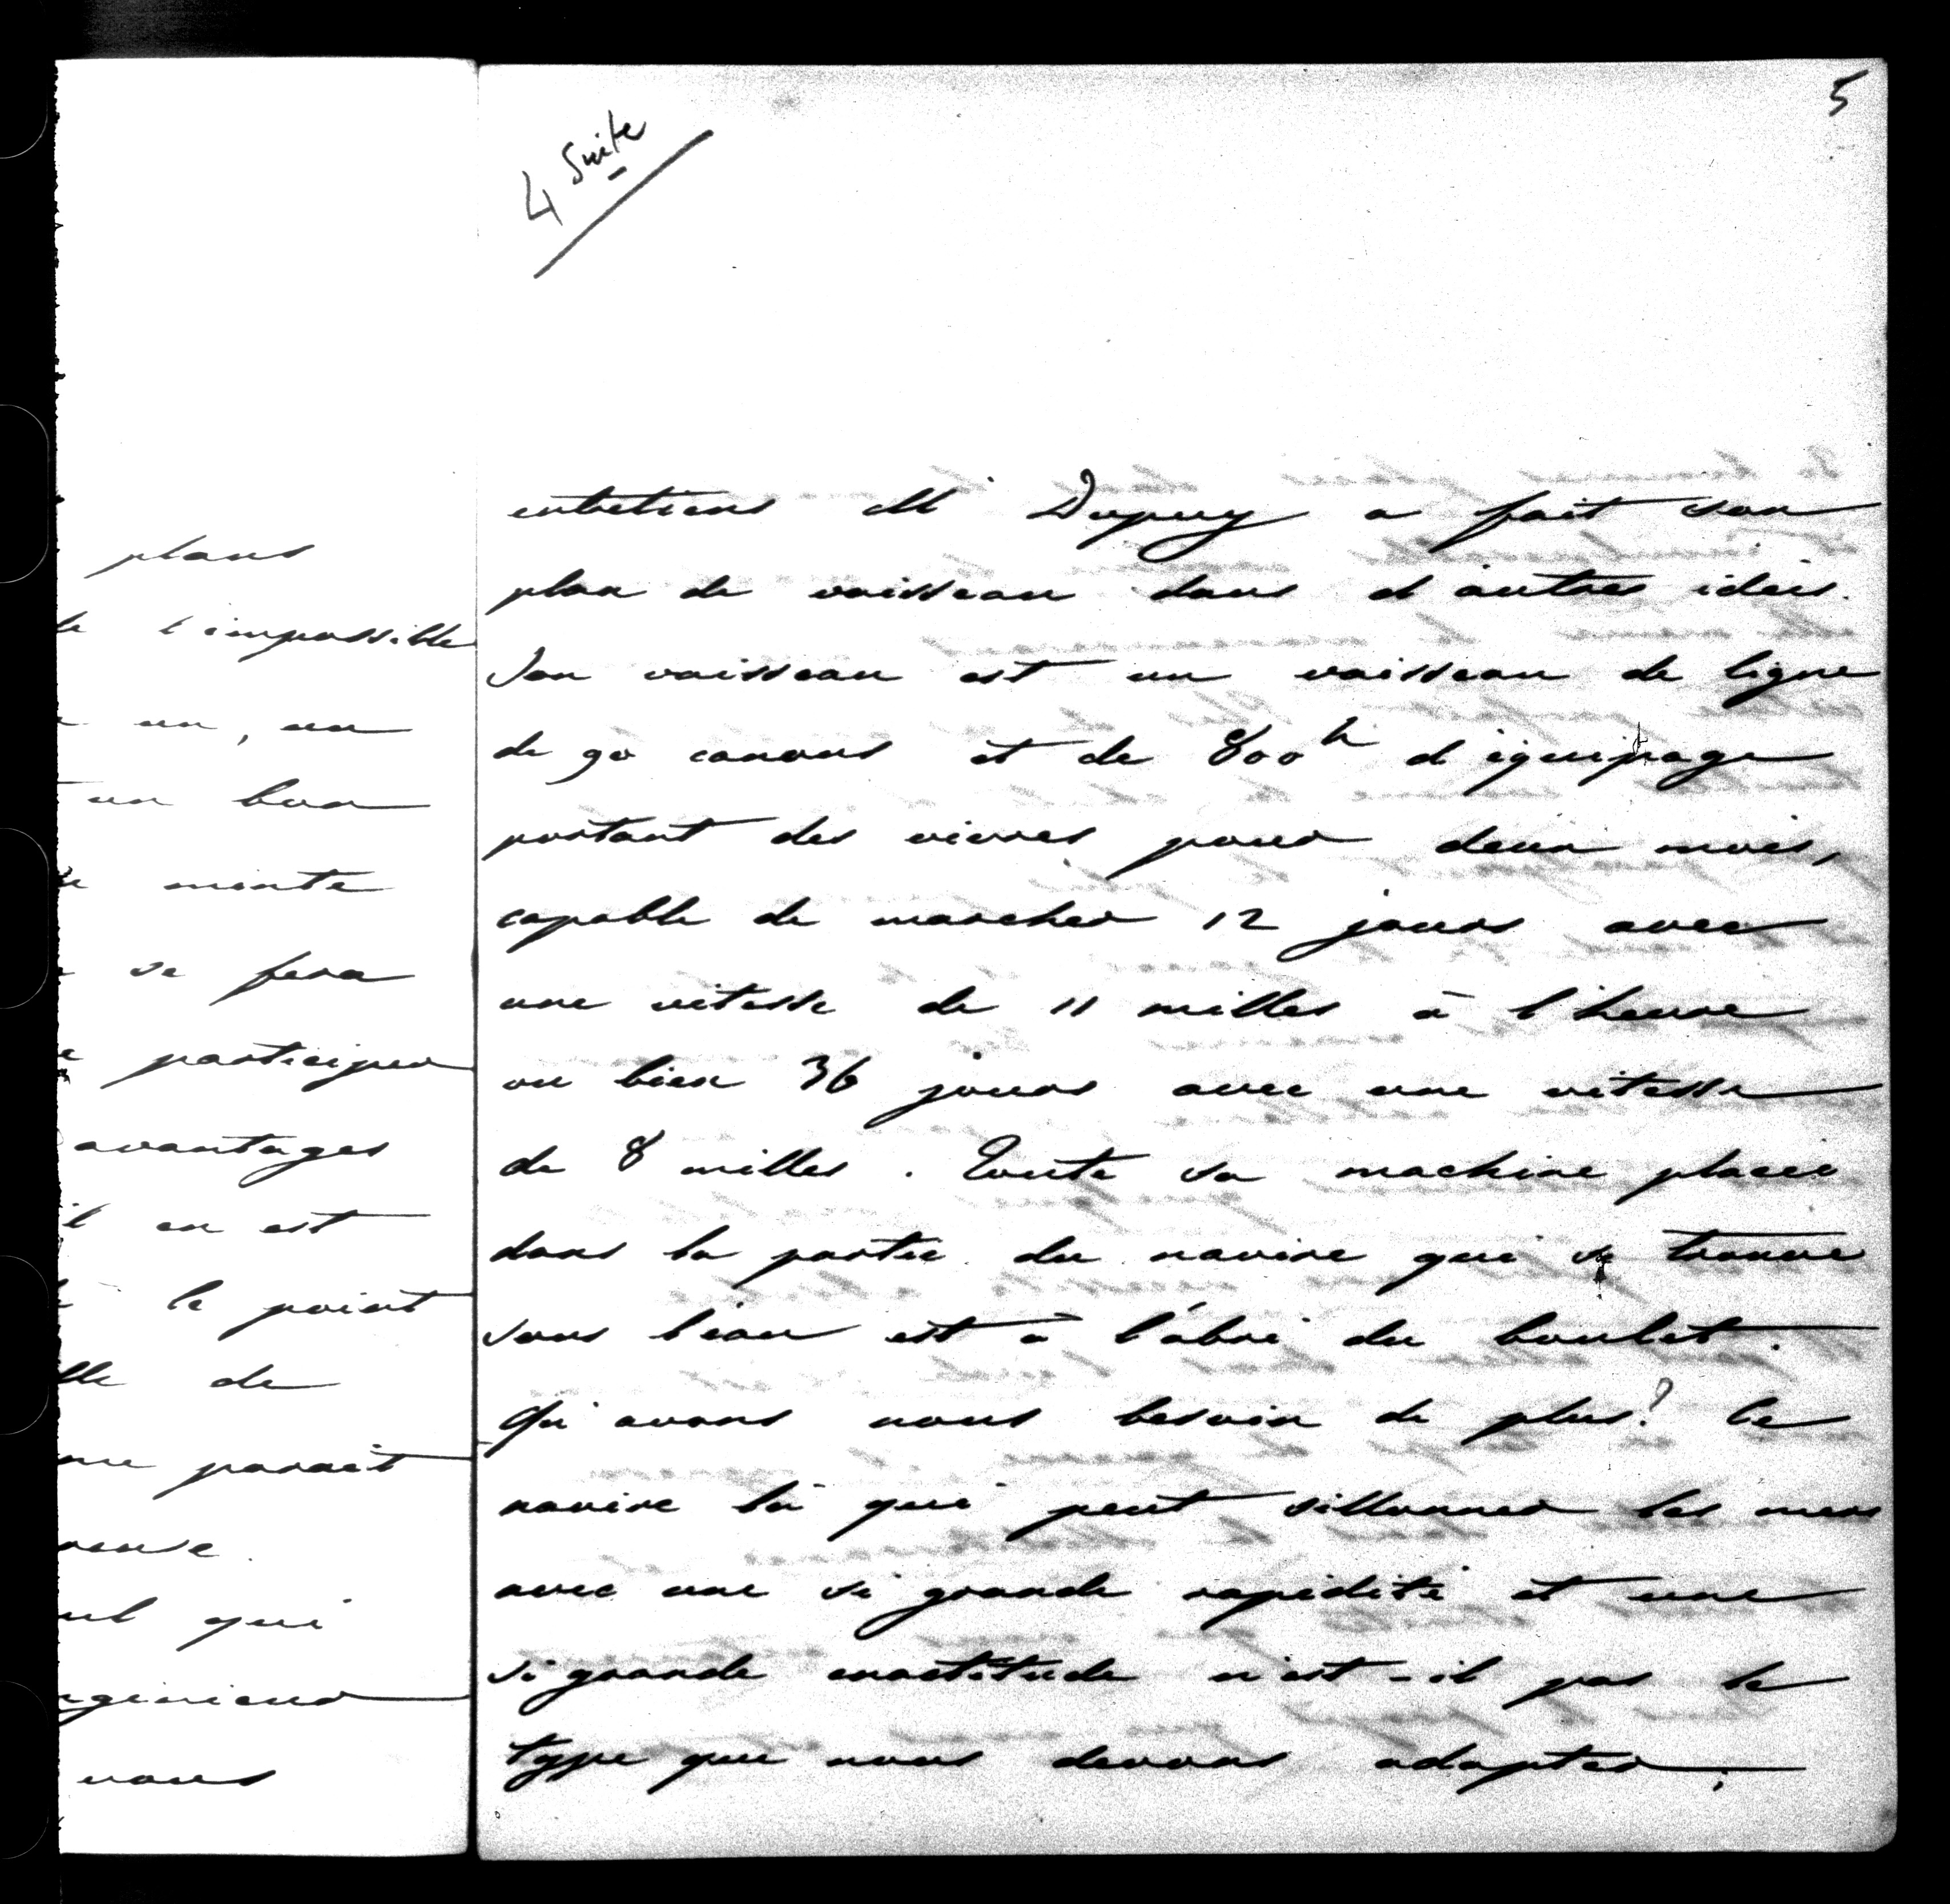 plans
l'impossible
un, un
un bon
minte
se fera
participer
avantages
il en est
le point
de
me parait
qui
vous
5
4 suite
entretiens M Dupuy a fait son
plan de vaisseau dans d'autres idées.
Son vaisseau est un vaisseau de ligne
de 90 canons et de 800h d'équipage
portant des vivres pour deux mois,
capable de marcher 12 jours avec
une vitesse de 11 milles à l'heure
ou bien 36 jours avec une vitesse
de 8 milles. Toute sa machine placée
dans la partie du navire qui se trouve
sous l'eau est à l'abri du boulet.
Qu'avons nous besoin de plus? Ce
navire là qui peut sillonner les mers
avec une si grande rapidité et une
si grande exactitude n'est-il pas le
type que nous devons adopter;